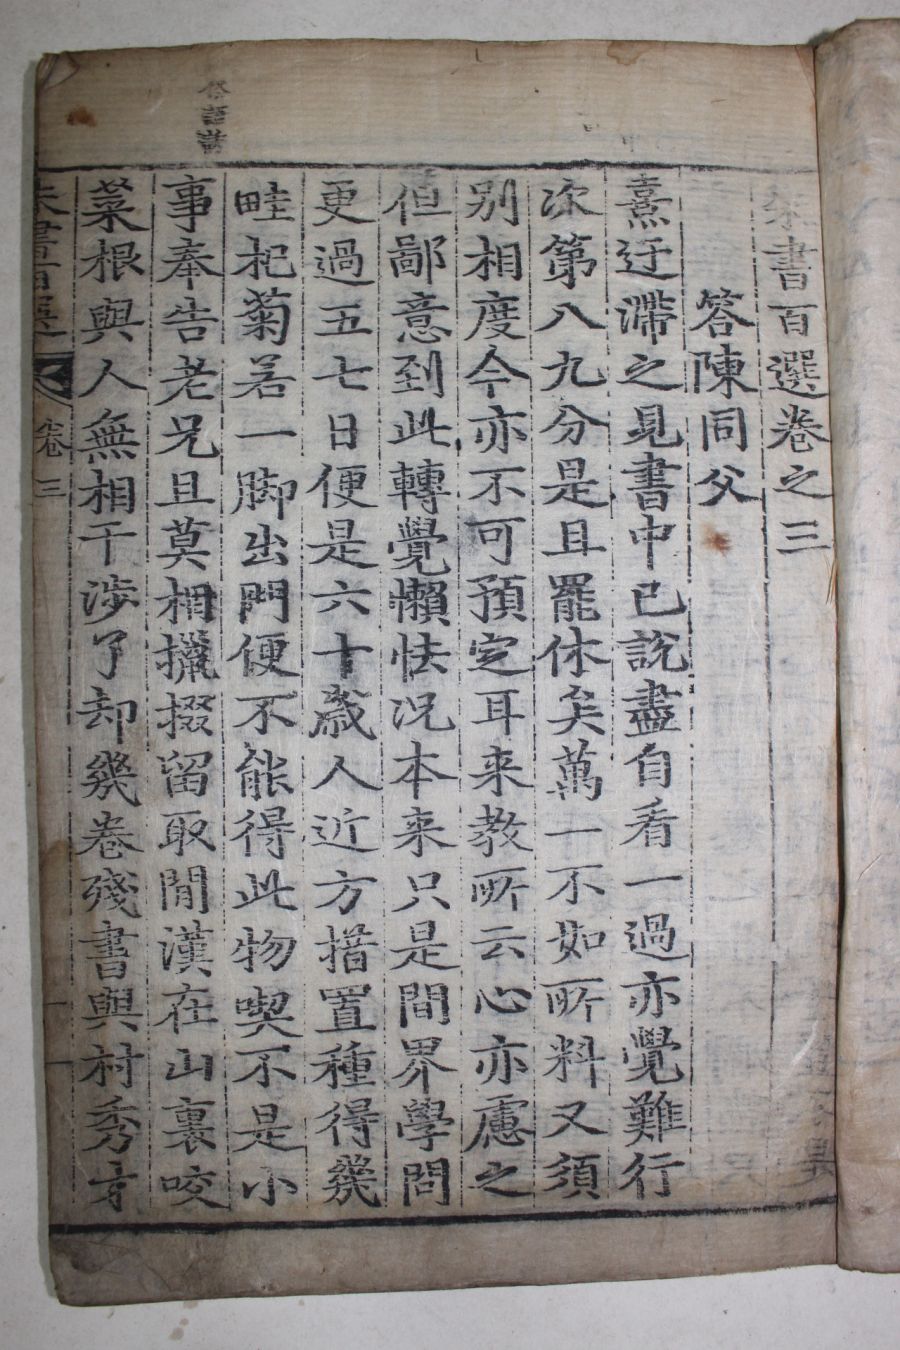 朱書百選卷之三
答陳同父
熹迂滯之見書中已說盡自看一過亦覺難行
次第八九分是且罷休矣萬一不如所料又須
别相度今亦不可預定耳来教所云心亦慮之
但鄙意到此轉覺懶怯况本来只是間界學問
更過五七日便是六十歲人近方措置種得幾
畦杞菊若一脚出門便不能得此物喫不是小
事奉告老兄且莫相攛掇留取閒漢在山裏咬
菜根與人無相干涉了却幾卷殘書與村秀才
朱書百選
卷三